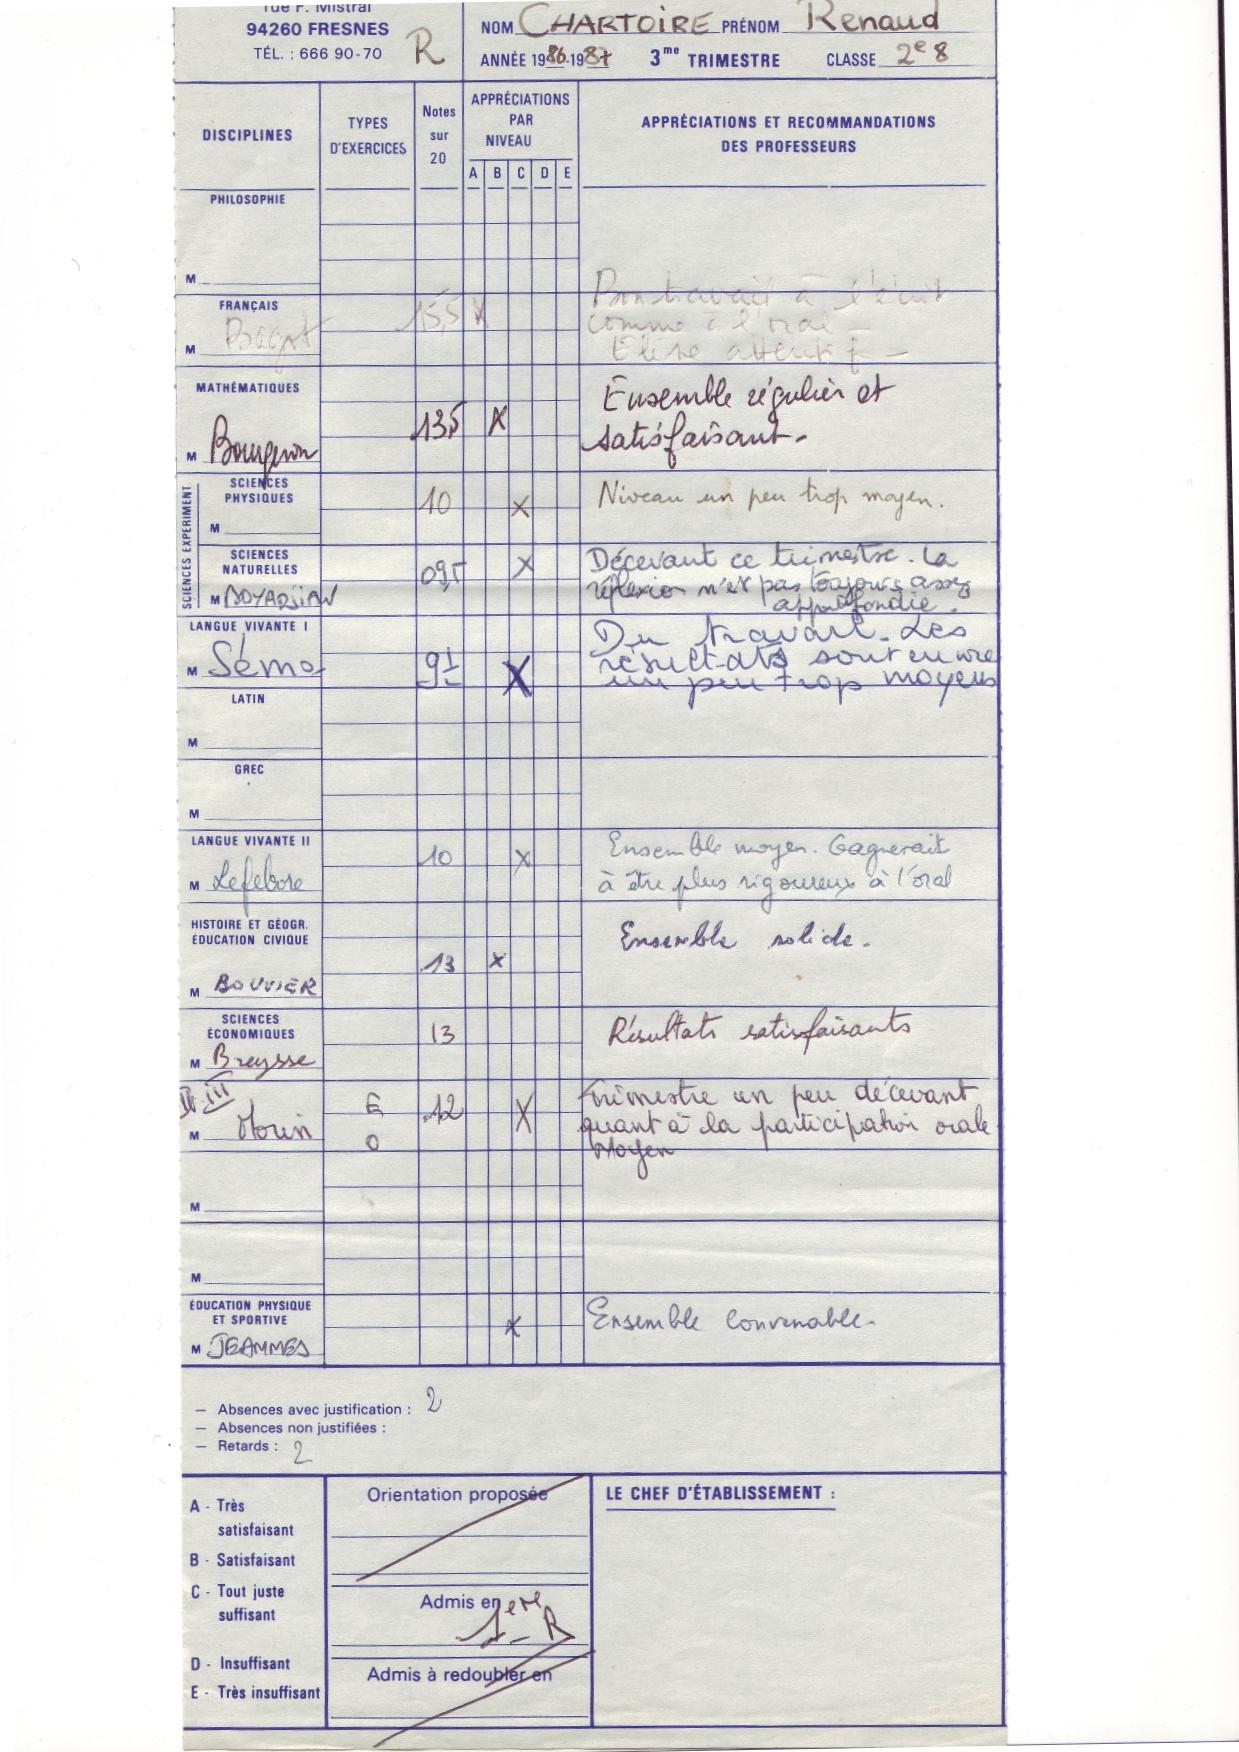 rue F. Mistral
94260 FRESNES
TÉL. : 666 90-70
R
NOM CHARTOIRE PRÉNOM Renaud
ANNÉE 1986-1987 3me TRIMESTRE CLASSE 2e 8
DISCIPLINES
TYPES D'EXERCICES
Notes sur 20
APPRÉCIATIONS PAR NIVEAU
A B C D E
APPRÉCIATIONS ET RECOMMANDATIONS
DES PROFESSEURS
PHILOSOPHIE
M
FRANÇAIS
M
15,5 X
Bon travail à l'écrit
comme à l'oral -
Elève attentif -
MATHÉMATIQUES
M Bourgeron
13,5 X
Ensemble régulier et
satisfaisant.
SCIENCES EXPERIMENT
SCIENCES
PHYSIQUES
M
10 X
Niveau un peu trop moyen.
SCIENCES
NATURELLES
M BOYADJIAN
09,5 X
Décevant ce trimestre. La
réflexion n'est pas toujours assez
approfondie.
LANGUE VIVANTE I
M
9½ X
Du travail. Les
résultats sont encore
un peu trop moyens
LATIN
M
GREC
M
LANGUE VIVANTE II
M Lefebvre
10 X
Ensemble moyen. Gagnerait
à être plus rigoureux à l'oral
HISTOIRE ET GÉOGR.
ÉDUCATION CIVIQUE
M BOUVIER
13 X
Ensemble solide.
SCIENCES
ÉCONOMIQUES
M Breysse
13
Résultats satisfaisants
LV III
M Morin
E
O
12 X
Trimestre un peu décevant
quant à la participation orale
Moyen
M
M
ÉDUCATION PHYSIQUE
ET SPORTIVE
M JEAMMES
X
Ensemble convenable.
— Absences avec justification : 2
— Absences non justifiées :
— Retards : 2
A - Très
satisfaisant
B - Satisfaisant
C - Tout juste
suffisant
D - Insuffisant
E - Très insuffisant
Orientation proposée
Admis en 1ère R
Admis à redoubler en
LE CHEF D'ÉTABLISSEMENT :